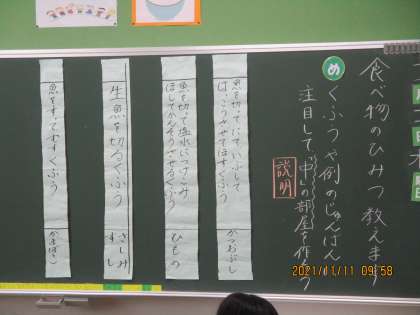 食べ物のひみつ教えます
め くふうや例のじゅんばんに
注目して「中」の部屋を作ろう
説明
魚を切ってにていぶして
はっこうさせてほすくふう
かつおぶし
魚を切って塩水につけこみ
ほしてかんそうさせるくふう
ひもの
生魚を切るくふう
さしみ
すし
魚をすってむすくふう
かまぼこ
2021/11/11 09:58